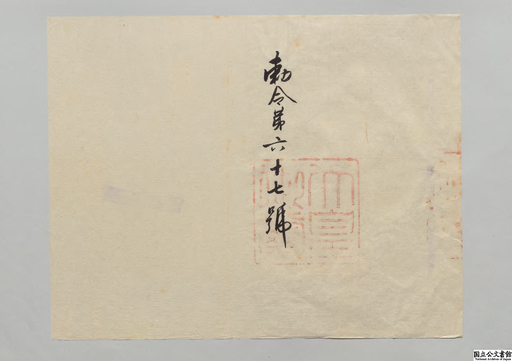 勅令第六十七號
国立公文書館
National Archives of Japan